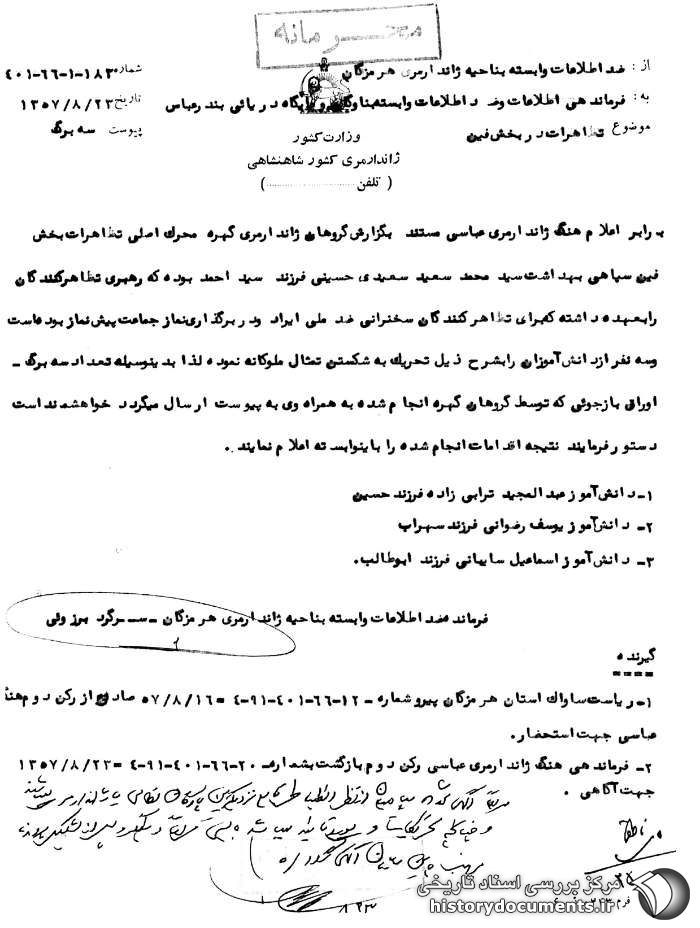 محرمانه
از : ضد اطلاعات وابسته بناحیه ژاندارمری هرمزگان
شماره ۱۸۳-۱-۶۶-۴۰۱
به : فرماندهی اطلاعات وضد اطلاعات وابسته بناوگان و پایگاه دریائی بندرعباس
تاریخ ۱۳۵۷/۸/۲۳
موضوع تظاهرات در بخش فین
پیوست سه برگ
وزارت کشور
ژاندارمری کشور شاهنشاهی
( تلفن ......................)
برابر اعلام هنگ ژاندارمری عباسی مستند بگزارش گروهان ژاندارمری گهره محرک اصلی تظاهرات بخش
فین سپاهی بهداشت سید محمد سعید سعیدی حسینی فرزند سید احمد بوده که رهبری تظاهر کنندگان
را بعهده داشته که برای تظاهر کنندگان سخنرانی ضد ملی ایراد ودر برگذاری نماز جماعت پیش نماز بوده است
وسه نفر از دانش آموزان را بشرح ذیل تحریک به شکستن تمثال ملوکانه نموده لذا بدینوسیله تعداد سه برگ -
اوراق بازجوئی که توسط گروهان گهره انجام شده به همراه وی به پیوست ارسال میگردد خواهشمند است
دستور فرمایند نتیجه اقدامات انجام شده را باینوابسته اعلام نمایند .
۱- دانش آموز عبدالمجید ترابی زاده فرزند حسین
۲- دانش آموز یوسف رضوانی فرزند سهراب
۳- دانش آموز اسماعیل سایبانی فرزند ابوطالب.
فرمانده ضد اطلاعات وابسته بناحیه ژاندارمری هرمزگان - سرگرد برزوئی
گیرنده
====
۱- ریاست ساواک استان هرمزگان پیرو شماره - ۱۲-۶۶-۴۰۱-۹۱-۴ = ۵۷/۸/۱۶ صادره از رکن دوم هنگ
عباسی جهت استحضار.
۲- فرماندهی هنگ ژاندارمری عباسی رکن دوم بازگشت بشماره - ۲۰-۶۶-۴۰۱-۹۱-۴ = ۱۳۵۷/۸/۲۳
جهت آگاهی .
۸۲۳
مرکز بررسی اسناد تاریخی
historydocuments.ir